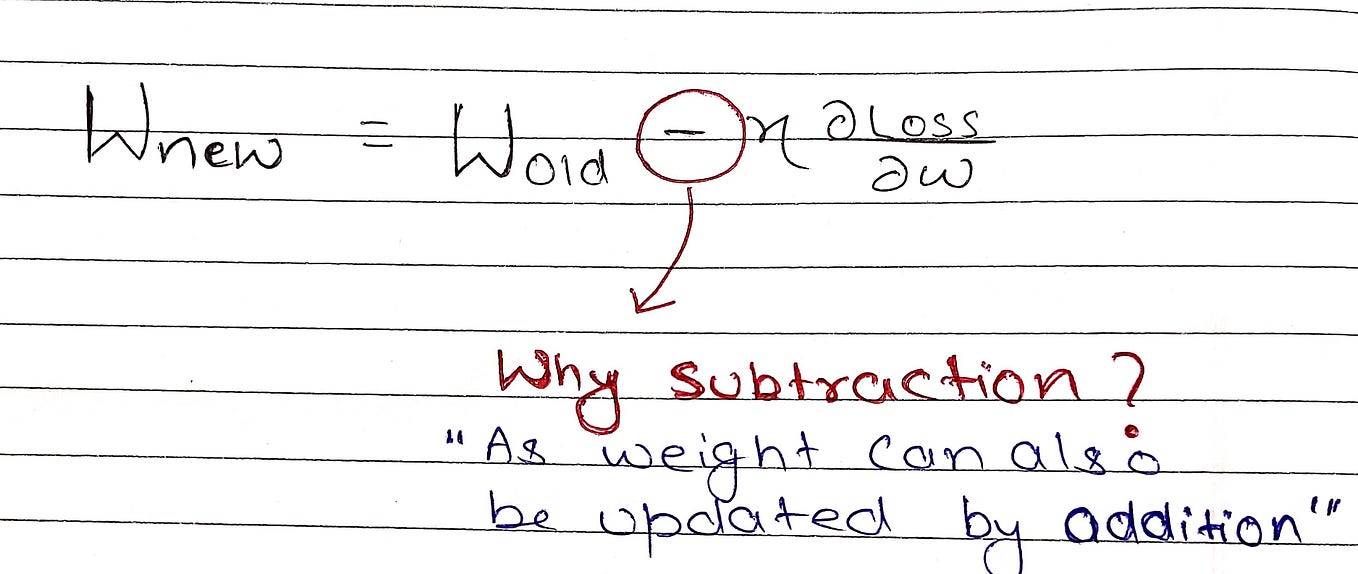 Wnew = Wold − η ∂Loss/∂w
Why subtraction?
"As weight can also
be updated by addition"